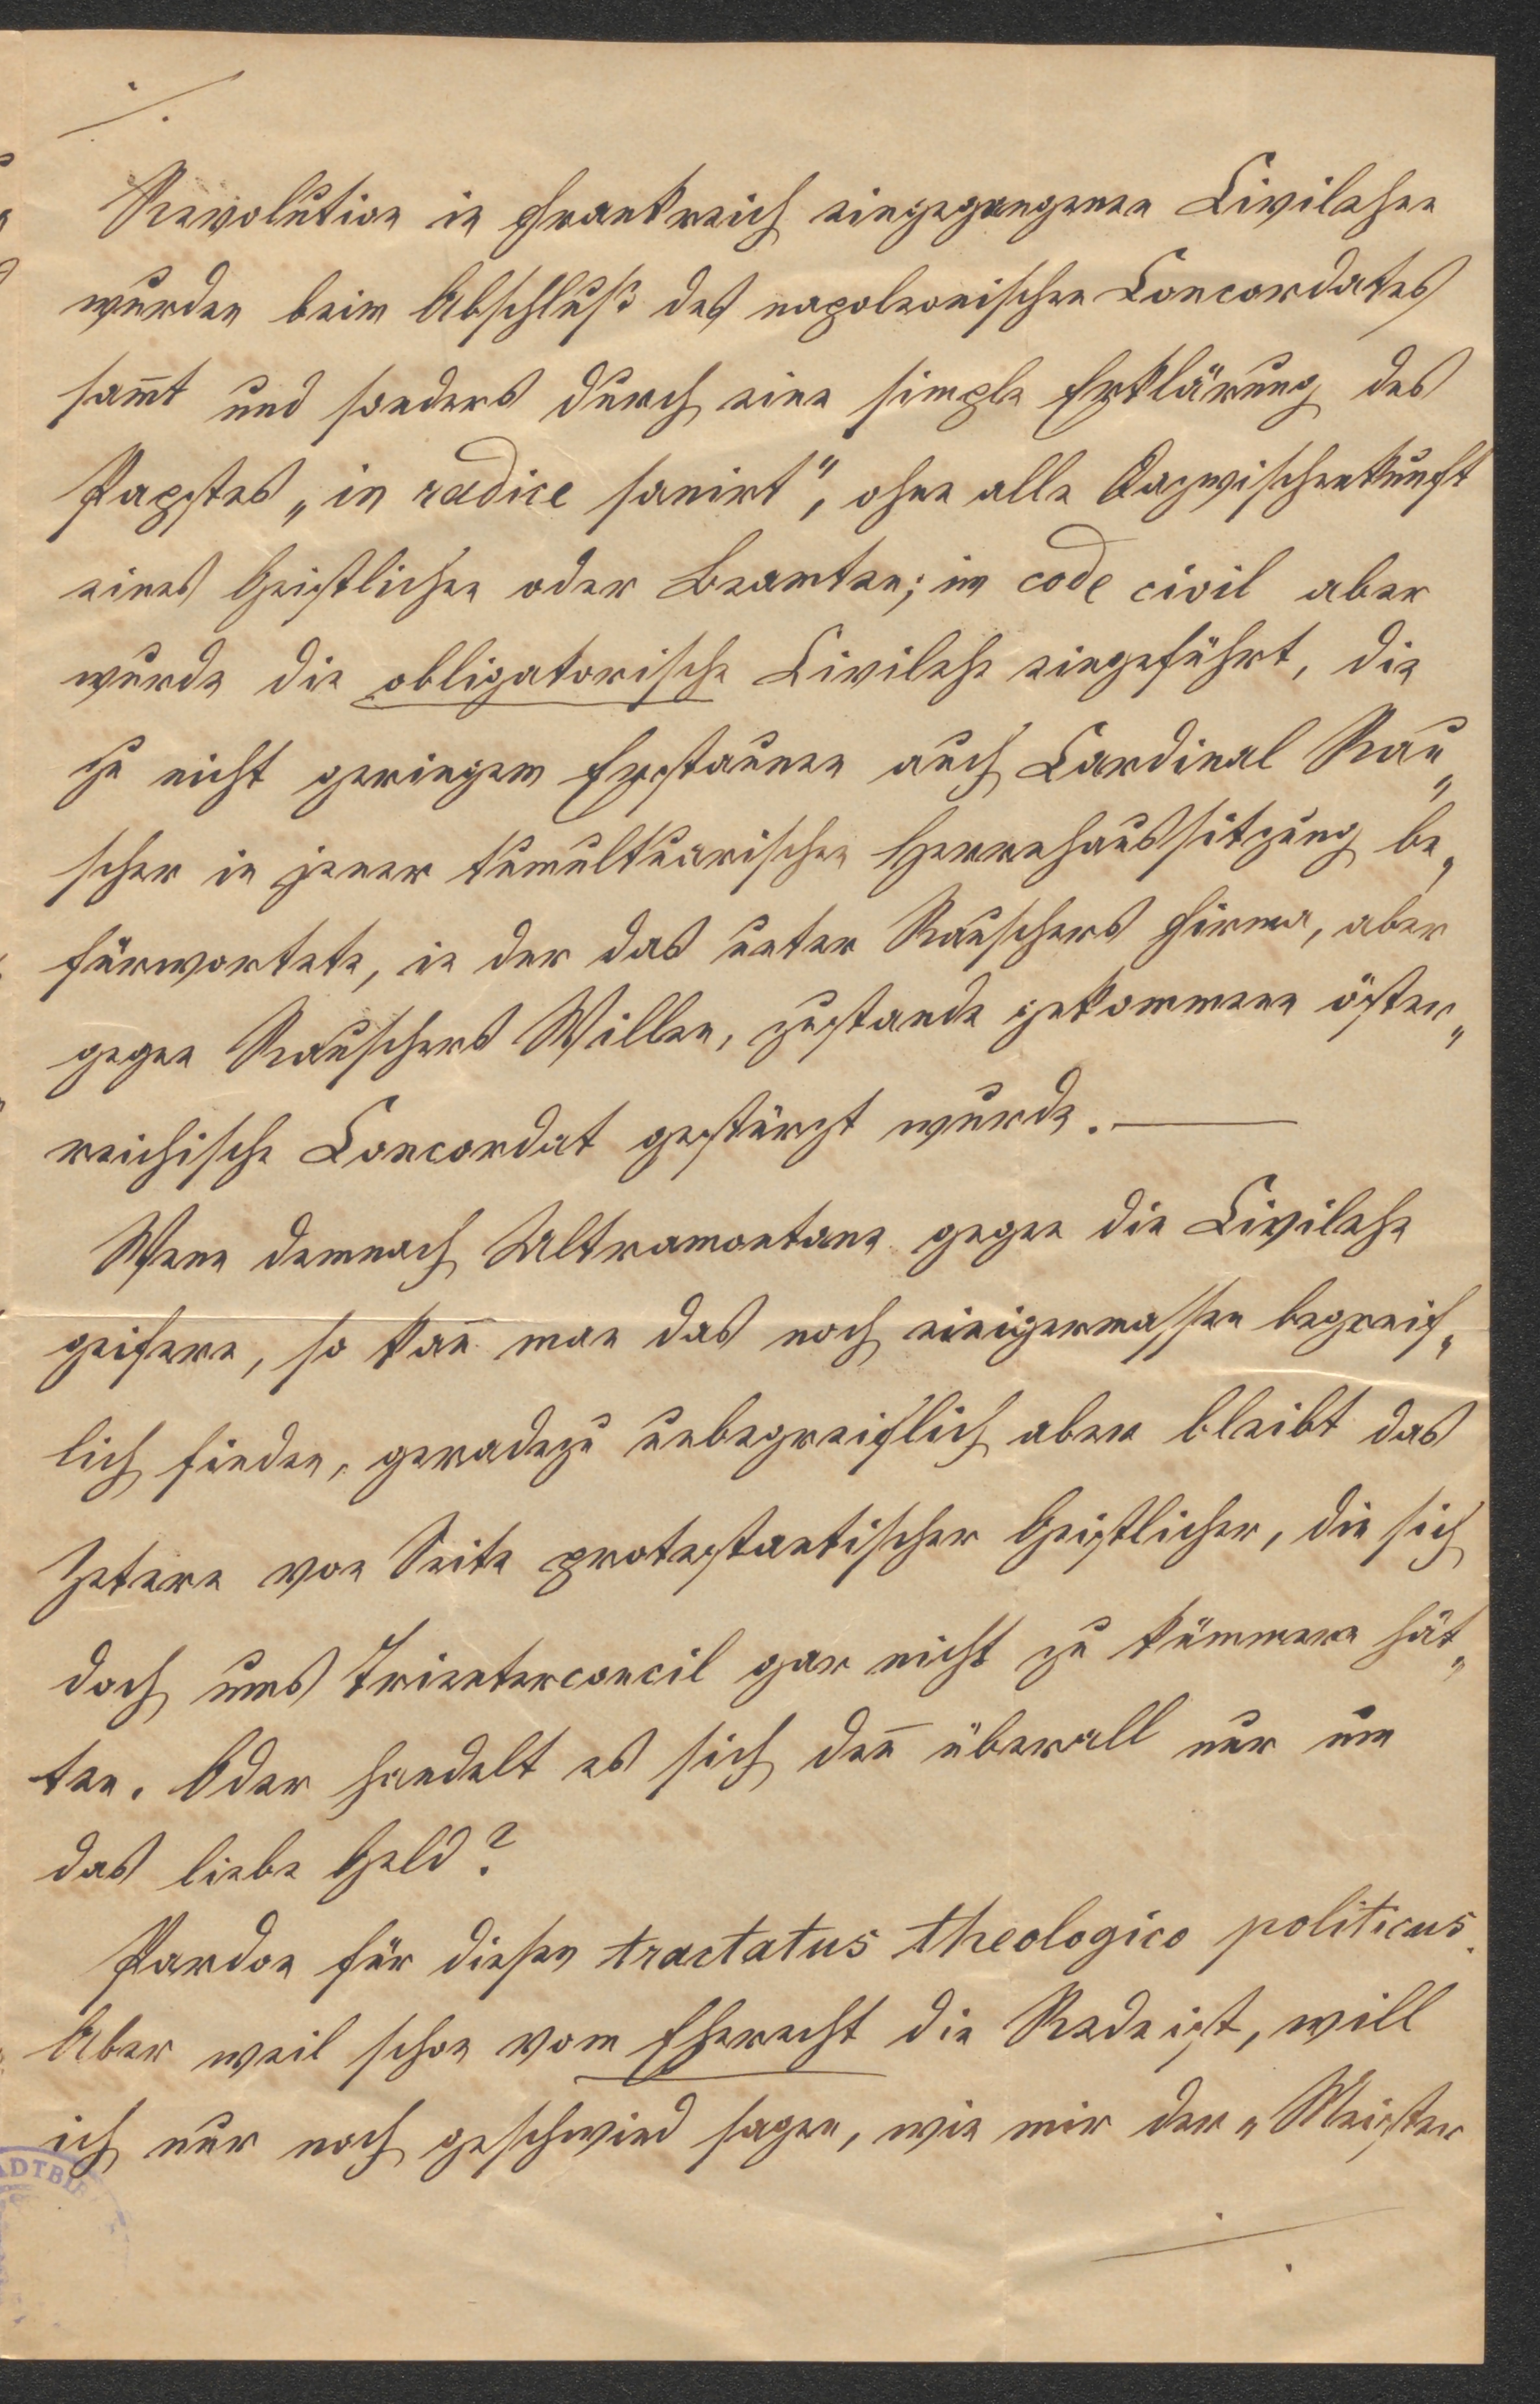 ./.
Revolution in Frankreich eingegangenen Civilehen
wurden beim Abschluß des napoleonischen Concordates
sam̄t und sonders durch eine simple Erklärung des
Papstes „in radice sanirt“, ohne alle Dazwischenkunft
eines Geistlichen oder Beamten; im code civil aber
wurde die obligatorische Civilehe eingeführt, die
zu nicht geringem Erstaunen auch Cardinal Rau„
scher in jener tumultuarischen Herrenhaussitzung be„
fürwortete, in der das unter Rauschers Firma, aber
gegen Rauschers Willen, zustande gekommene öster„
reichische Concordat gestürzt wurde. —
Wenn demnach Ultramontane gegen die Civilehe
geifern, so kan̄ man das noch einigermassen begreif„
lich finden, geradezu unbegreiflich aber bleibt das
Zetern von Seite protestantischer Geistlicher, die sich
doch ums Trienterconcil gar nicht zu kümmern hät„
ten. Oder handelt es sich den̄ überall nur um
das liebe Geld?
Pardon für diesen tractatus theologico politicus.
Aber weil schon vom Eherecht die Rede ist, will
ich nur noch geschwind sagen, wie mir der „Meister
./.
ADTBI